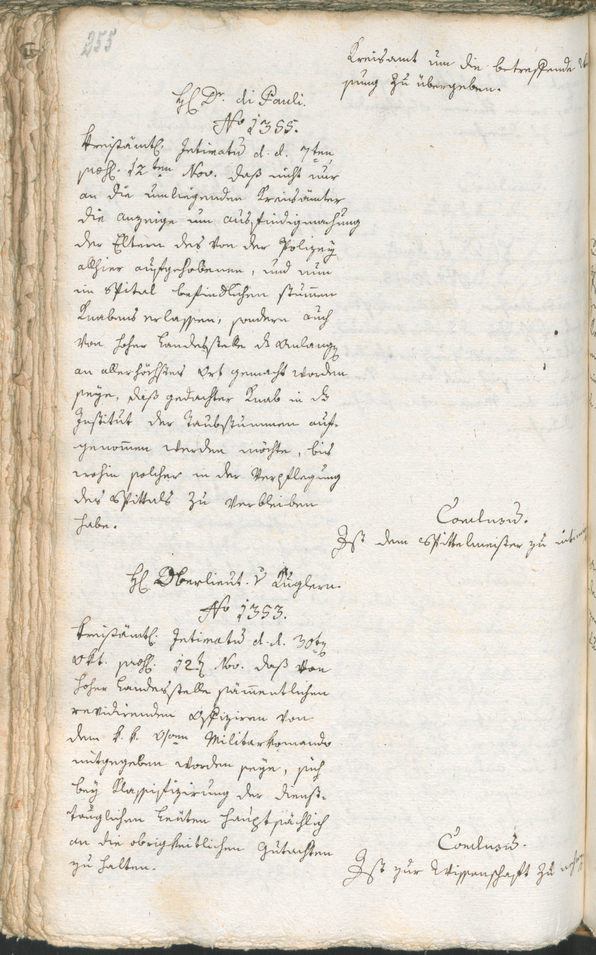 255
Kreisamt um die betreffende
pung zu übergeben.
H. Dr. di Pauli.
No 1355.
Kreisämtl. Intimatum d. d. 7ten
präs. 12ten Nov. daß nicht nur
an die umliegenden Kreisämter
die Anzeige um Ausfindigmachung
der Eltern des von der Polizey
allhier aufgehobenen, und nun
im Spital befindlichen stummen
Knabens erlassen, sondern auch
von hoher Landesstelle die Anlangen
an allerhöchsten Ort gemacht worden
seye, daß gedachter Knab in das
Institut der Taubstummen auf-
genommen werden möchte, bis
wohin solcher in der Verpflegung
des Spittals zu verbleiben
habe.
Conclusum.
Ist dem Spittelmeister zu
H. Oberlieut. v Kuglern.
No 1353.
Kreisämtl. Intimatum d. d. 30ten
Okt. präs. 12ten Nov. daß von
hoher Landesstelle sämmentlichen
revidirenden Offiziren von
dem k. k. Militarkomando
mitgegeben worden seye, sich
bey Klassifizirung der dienst-
tauglichen Leuten hauptsächlich
an die obrigkeitlichen Gutachten
zu halten.
Conclusum.
Ist zur Wissenschaft zu